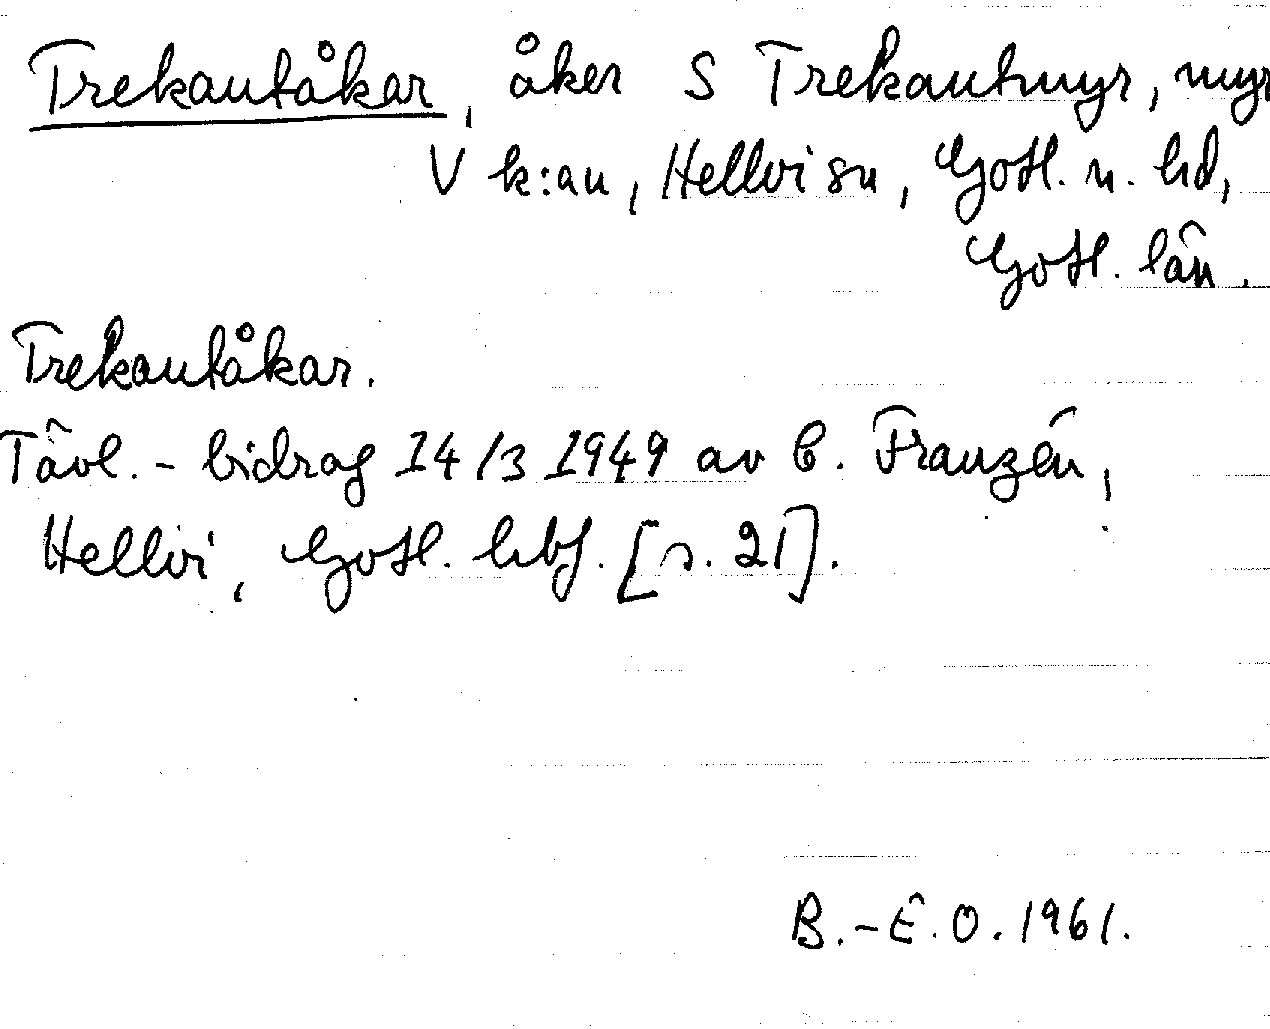 Trekantåkar, åker S Trekantmyr, myr
V k:an, Hellvi sn, Gotl. n. hd,
Gotl. län.
Trekantåkar.
Tävl.-bidrag 14/3 1949 av C. Franzén,
Hellvi, Gotl. hbf. [s. 21].
B.-E. O. 1961.